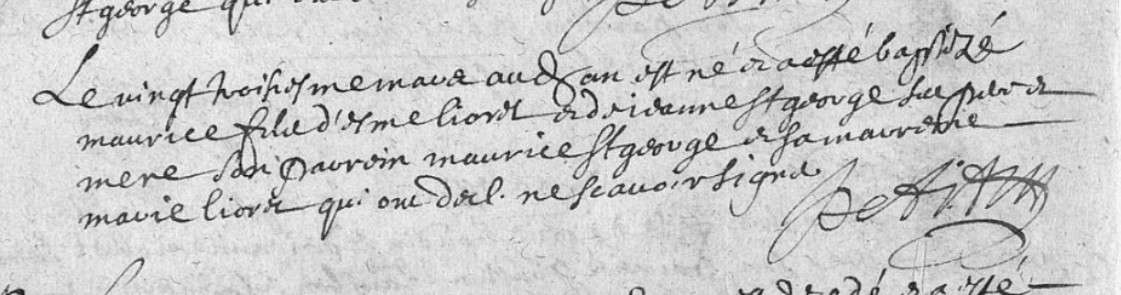 St george qui
Le vingt troisiesme mars aud. an est né et a esté baptizé
maurice filz d'esme lioret et de jeanne St george ses pere et
mere son parrein maurice St george et sa marreine
marie lioret qui ont decl. ne scavoir signe
Petit
et a esté